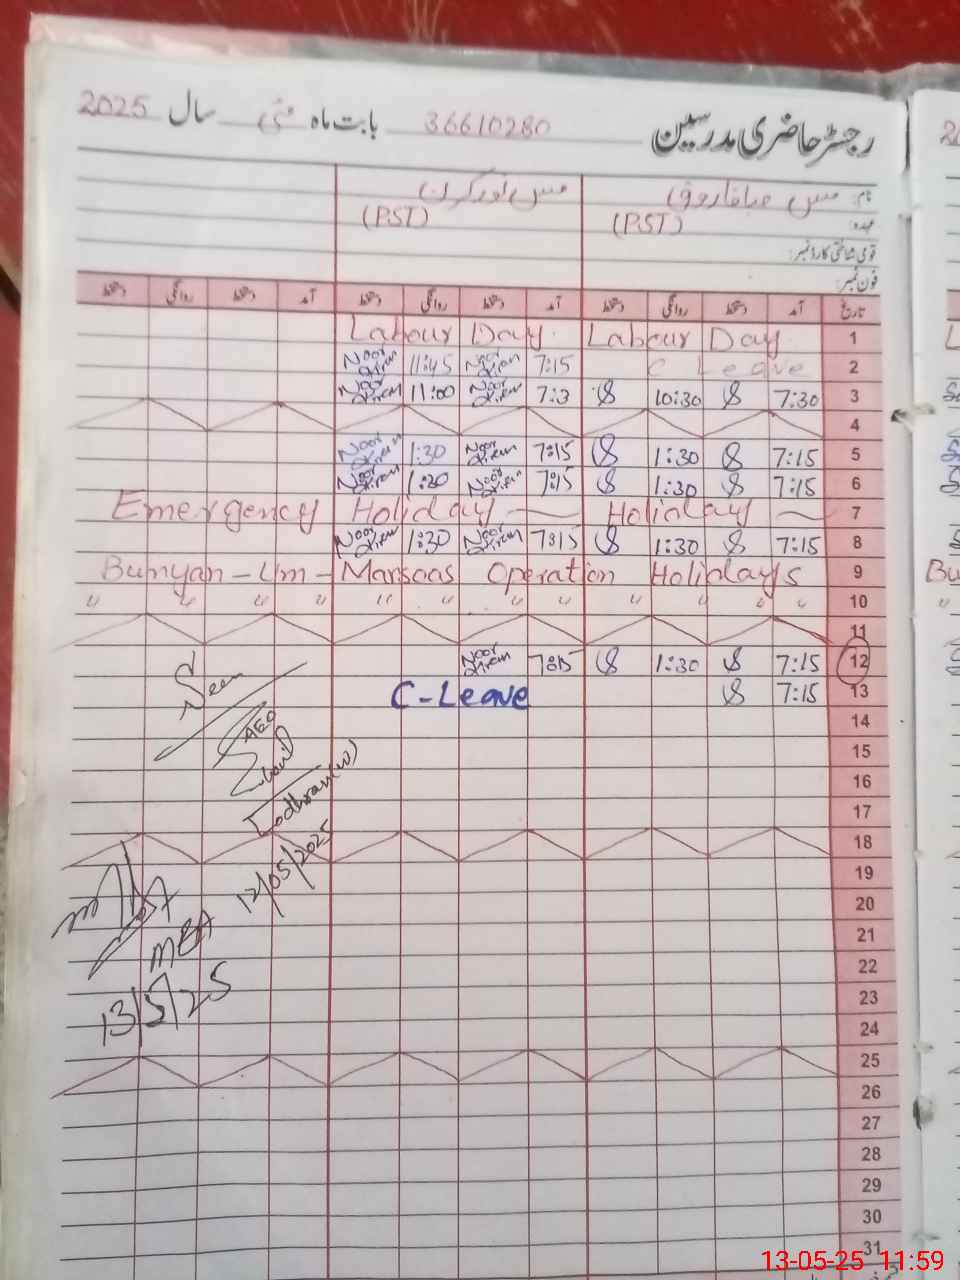 رجسٹر حاضری مدرسین 36610280 بابت ماہ مئی سال 2025
نام: مس صبا فاروق مس نور کرن
عہدہ: (PST) (PST)
قومی شناختی کارڈ نمبر:
فون نمبر:
تاریخ آمد دستخط روانگی دستخط آمد دستخط روانگی دستخط آمد دستخط روانگی دستخط
Labour Day Labour Day 1
Noor Kiren 11:45 Noor Kiren 7:15 C Leave 2
Noor Kiren 11:00 Noor Kiren 7:3 S 10:30 S 7:30 3
4
Noor Kiren 1:30 Noor Kiren 7:15 S 1:30 S 7:15 5
Noor Kiren 1:30 Noor Kiren 7:15 S 1:30 S 7:15 6
Emergency Holiday — Holiday — 7
Noor Kiren 1:30 Noor Kiren 7:15 S 1:30 S 7:15 8
Bunyan-Um-Marsoos Operation Holidays 9
" " " " " " " " " " " " 10
11
Noor Kiren 7:15 S 1:30 S 7:15 12
C-Leave S 7:15 13
Seen
14
AEO
15
16
Lodhran(w)
17
18
12/05/2025
19
20
MEA
21
22
13/5/25
23
24
25
26
27
28
29
30
31
13-05-25 11:59